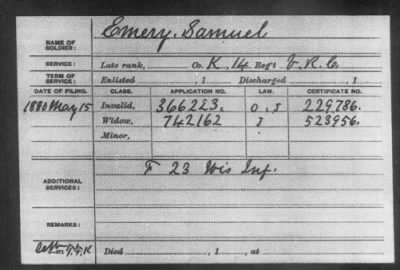 NAME OF SOLDIER: Emery, Samuel
SERVICE: Late rank, Co. K, 14 Reg't V. R. C.
TERM OF SERVICE: Enlisted , 1 Discharged , 1
DATE OF FILING. CLASS. APPLICATION NO. LAW. CERTIFICATE NO.
1880 May 15 Invalid, 366223. O. I 229786.
Widow, 742162 I 523956.
Minor,
F 23 Wis Inf.
ADDITIONAL SERVICES:
REMARKS:
Died , 1 , at